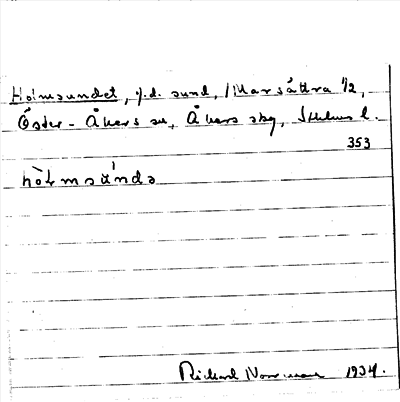 Holmsundet, f.d. sund, Marsättra 1/2,
Öster-Åkers sn, Åkers skg, Sthlms l.
353
hòlmsúndə
Richard Norrman 1934.